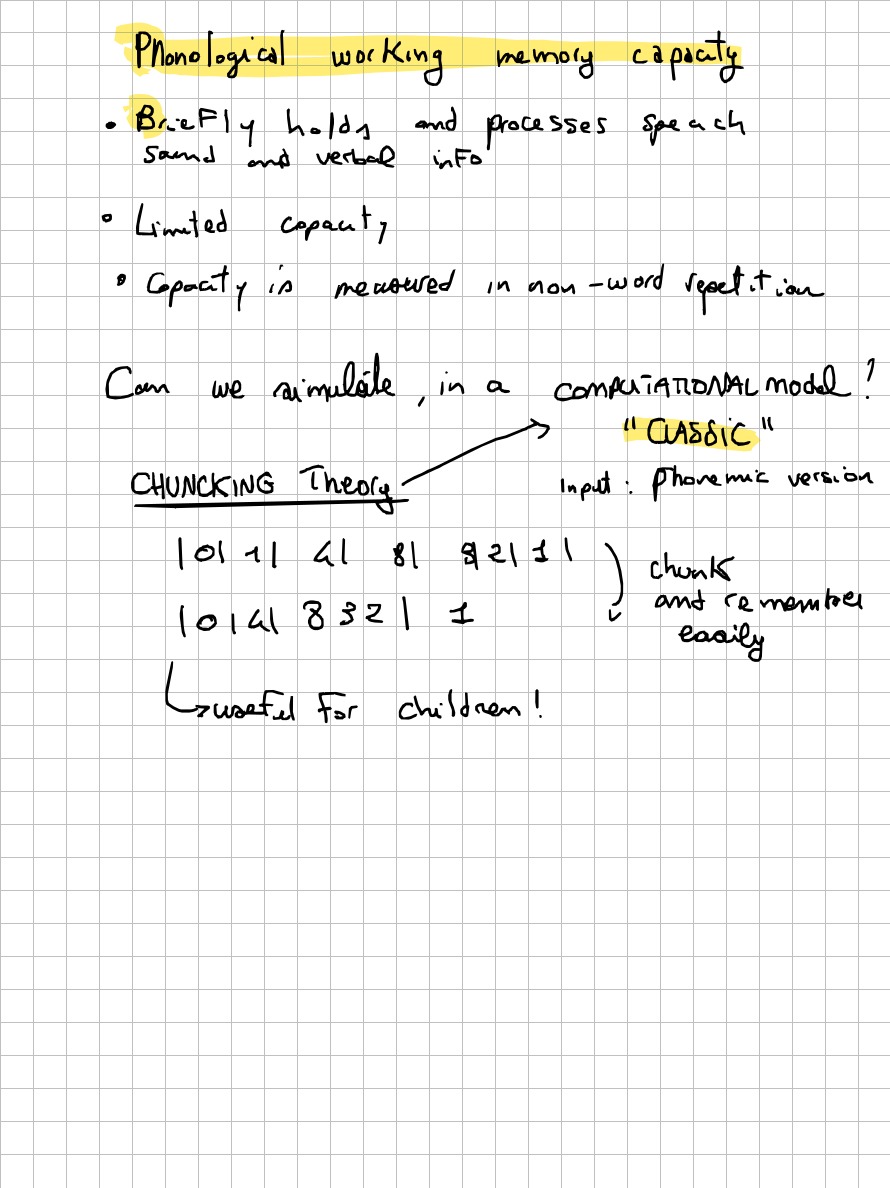 Phonological working memory capacity
• Briefly holds and processes speach
sound and verbal info
• Limited capacity
• Capacity is measured in non-word repetition
Can we simulate, in a COMPUTATIONAL model?
"CLASSIC"
CHUNCKING Theory
Input: Phonemic version
|0| 1| 4| 8| 3 2| 1|
chunk
and remember
easily
|0|4| 8 3 2 | 1
↳ useful for children!